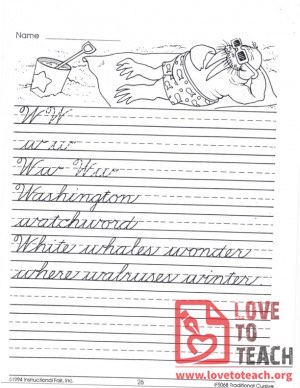 Name
W W
w w
Ww Ww
Washington
watchword
White whales wonder
where walruses winter.
LOVE
TO
TEACH
www.lovetoteach.org
©1994 Instructional Fair, Inc.
26
IF5068 Traditional Cursive